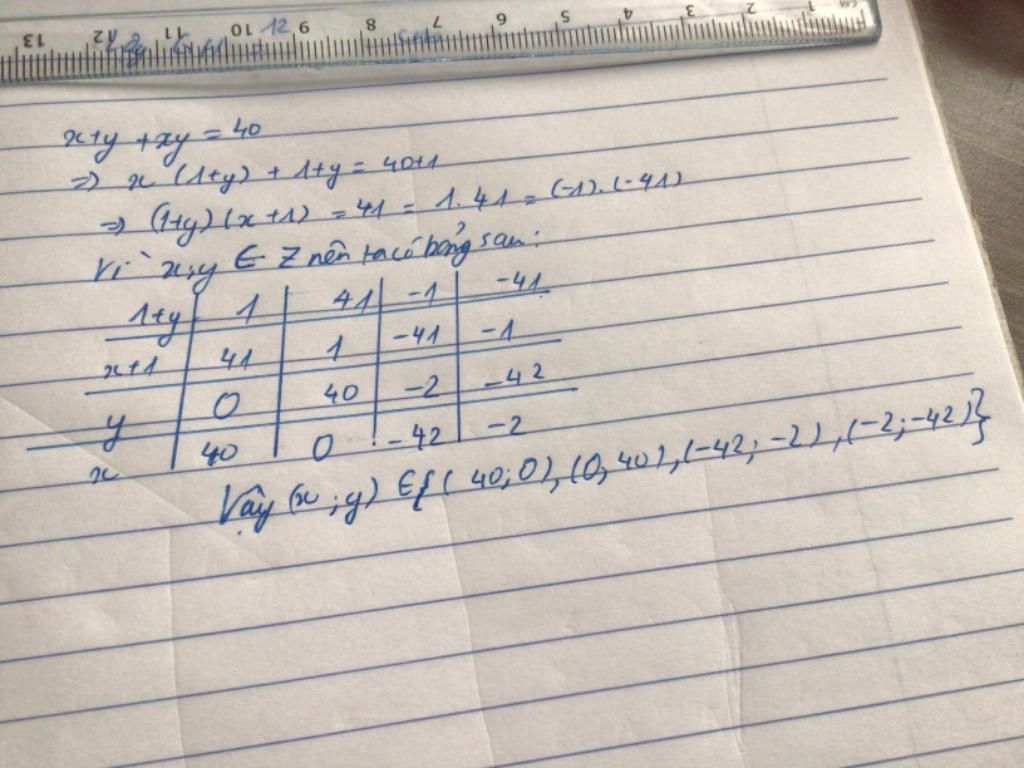 13 12 11 10 9 8 7 6 5 4 3 2 1 cm
12
x+y +xy = 40
=> x (1+y) + 1+y = 40+1
=> (1+y) (x+1) = 41 = 1.41 = (-1).(-41)
Vì x;y ∈ Z nên ta có bảng sau:
1+y 1 41 -1 -41
x+1 41 1 -41 -1
y 0 40 -2 -42
x 40 0 -42 -2
Vậy (x;y) ∈ { (40;0), (0,40), (-42; -2), (-2;-42)}